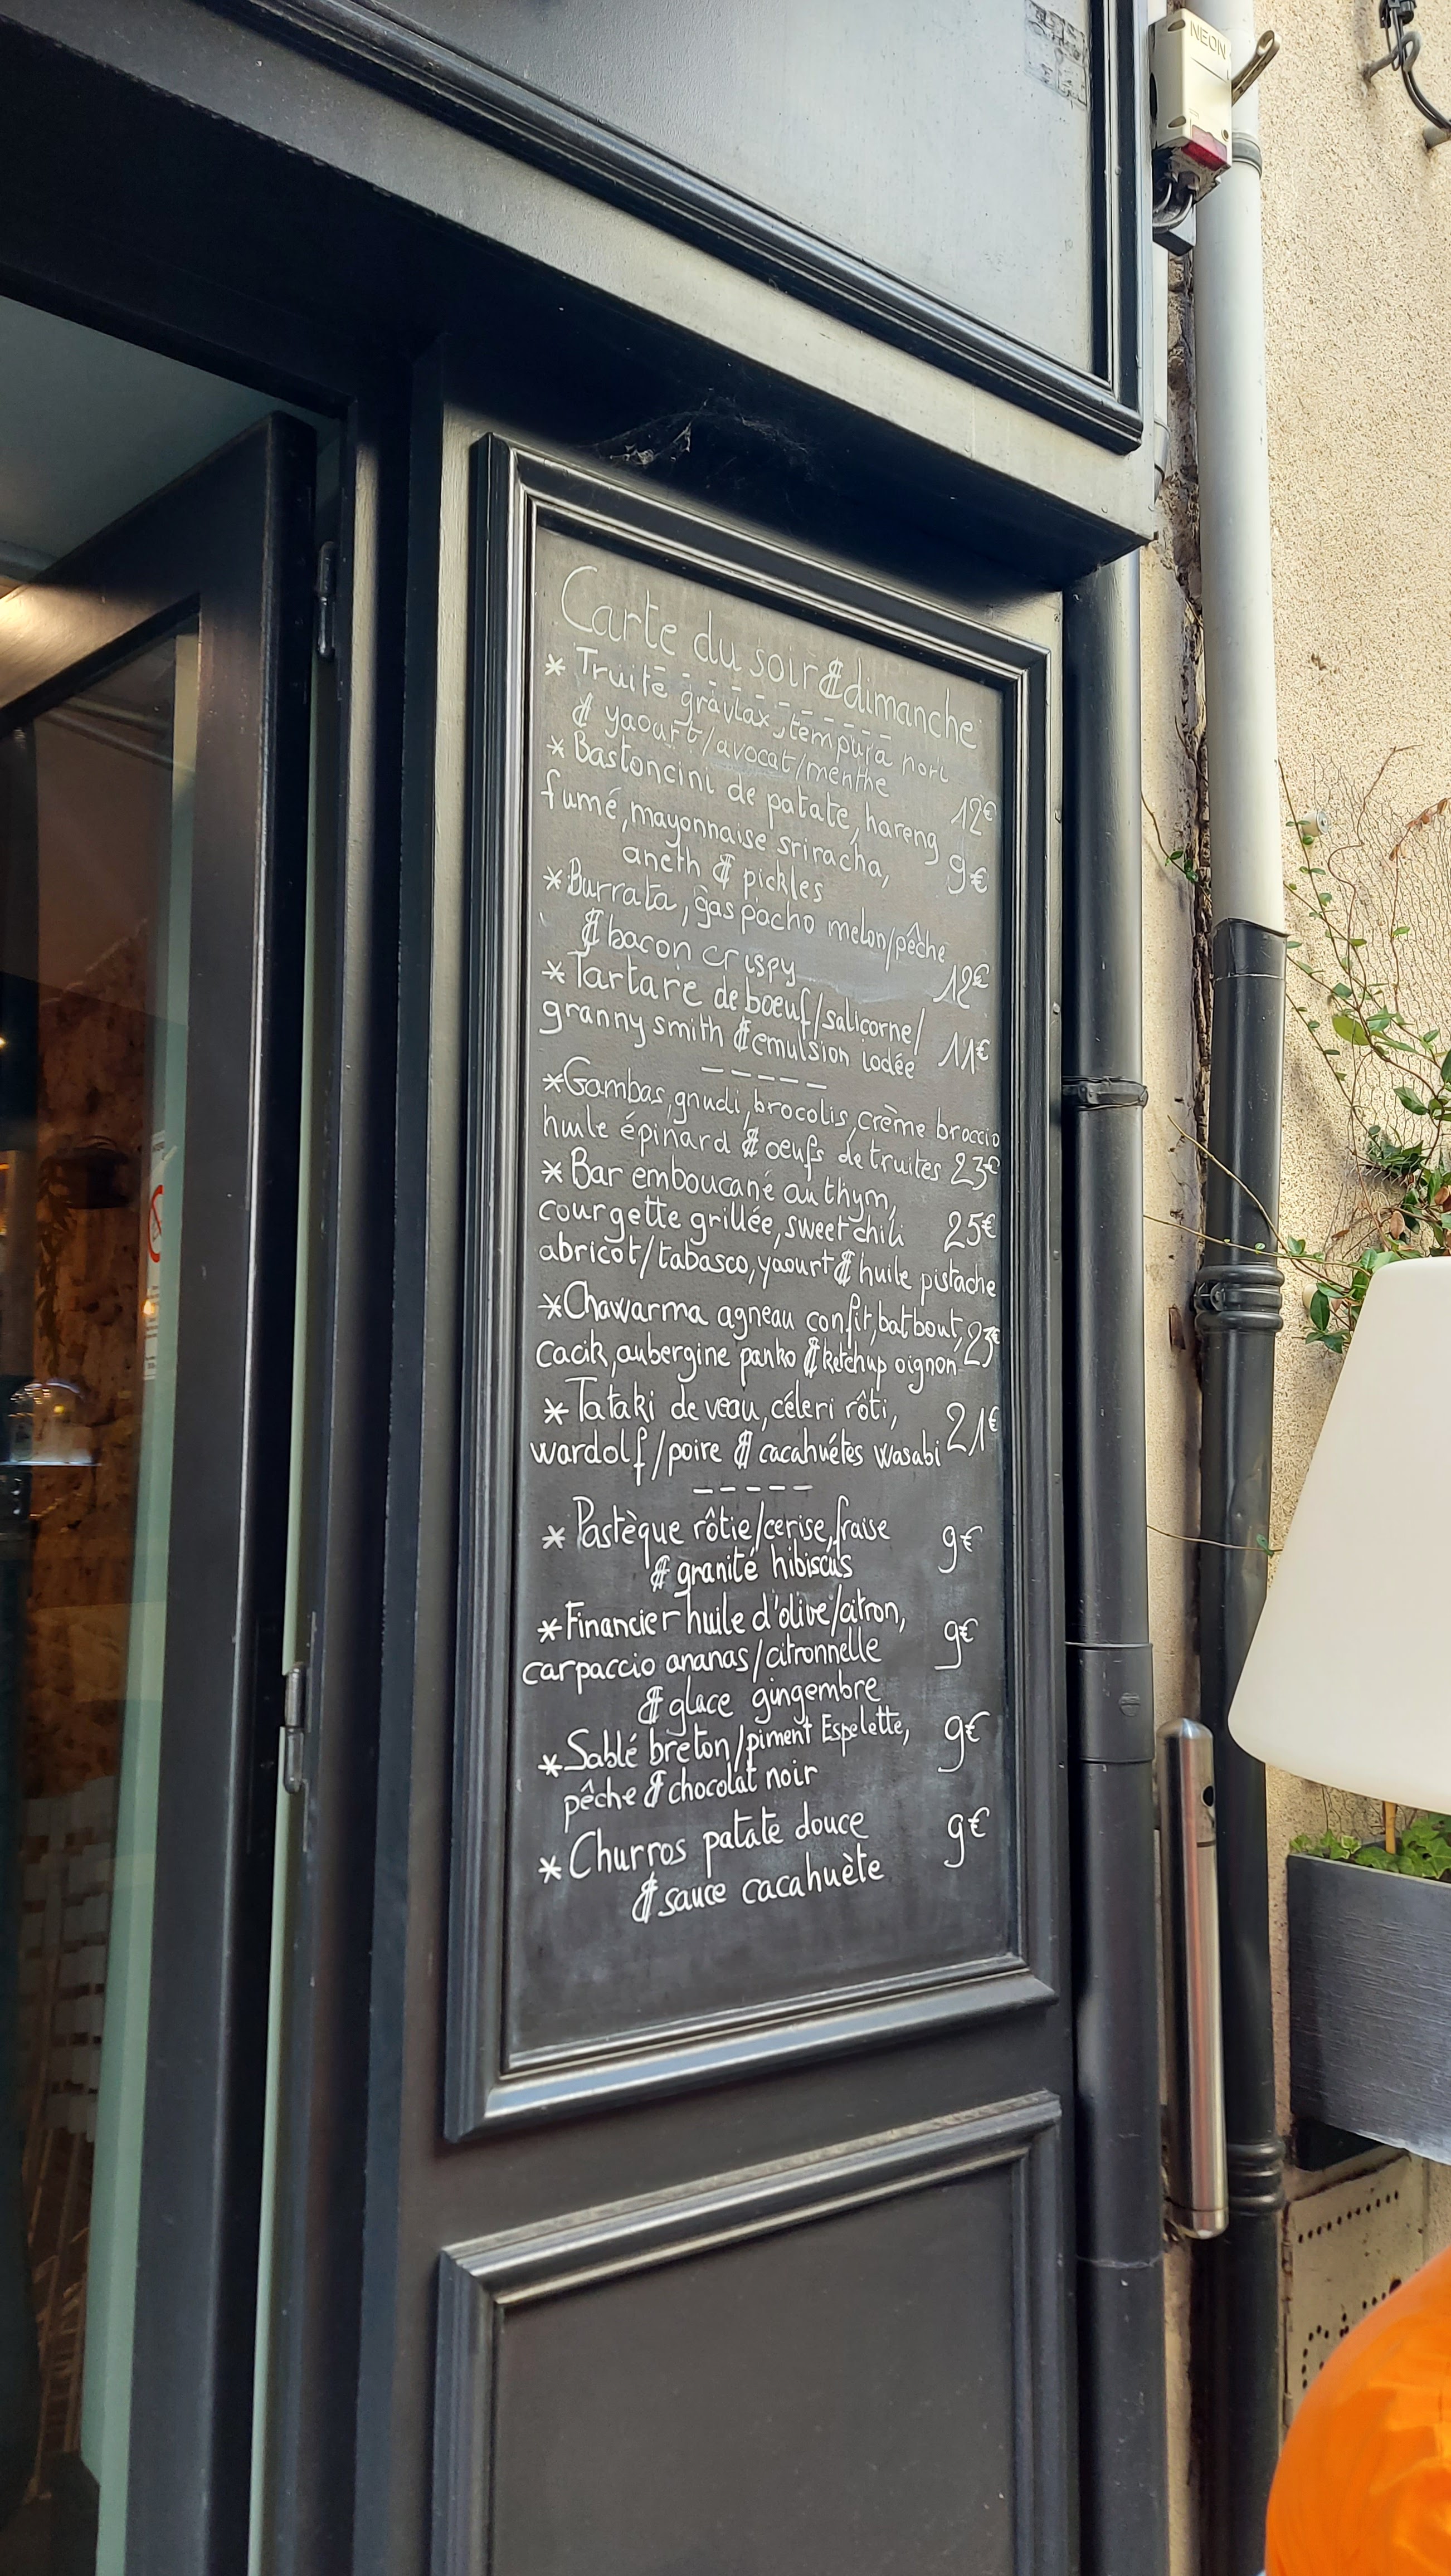 NEON
Carte du soir & dimanche
* Truite gravlax, tempura nori
& yaourt/avocat/menthe 12€
* Bastoncini de patate, hareng
fumé, mayonnaise sriracha, 9€
aneth & pickles
* Burrata, gaspacho melon/pêche
& bacon crispy 12€
* Tartare de boeuf/salicorne/
granny smith & emulsion iodée 11€
* Gambas, gnudi, brocolis, crème broccio
huile épinard & oeufs de truites 23€
* Bar emboucané au thym,
courgette grillée, sweet chili 25€
abricot/tabasco, yaourt & huile pistache
* Chawarma agneau confit, batbout, 23€
Cacik, aubergine panko & ketchup oignon
* Tataki de veau, céleri rôti, 21€
wardolf/poire & cacahuétes wasabi
* Pastèque rôtie/cerise, fraise 9€
& granité hibiscus
* Financier huile d'olive/citron, 9€
carpaccio ananas/citronnelle
& glace gingembre
* Sablé breton/piment Espelette, 9€
pêche & chocolat noir
* Churros patate douce 9€
& sauce cacahuète